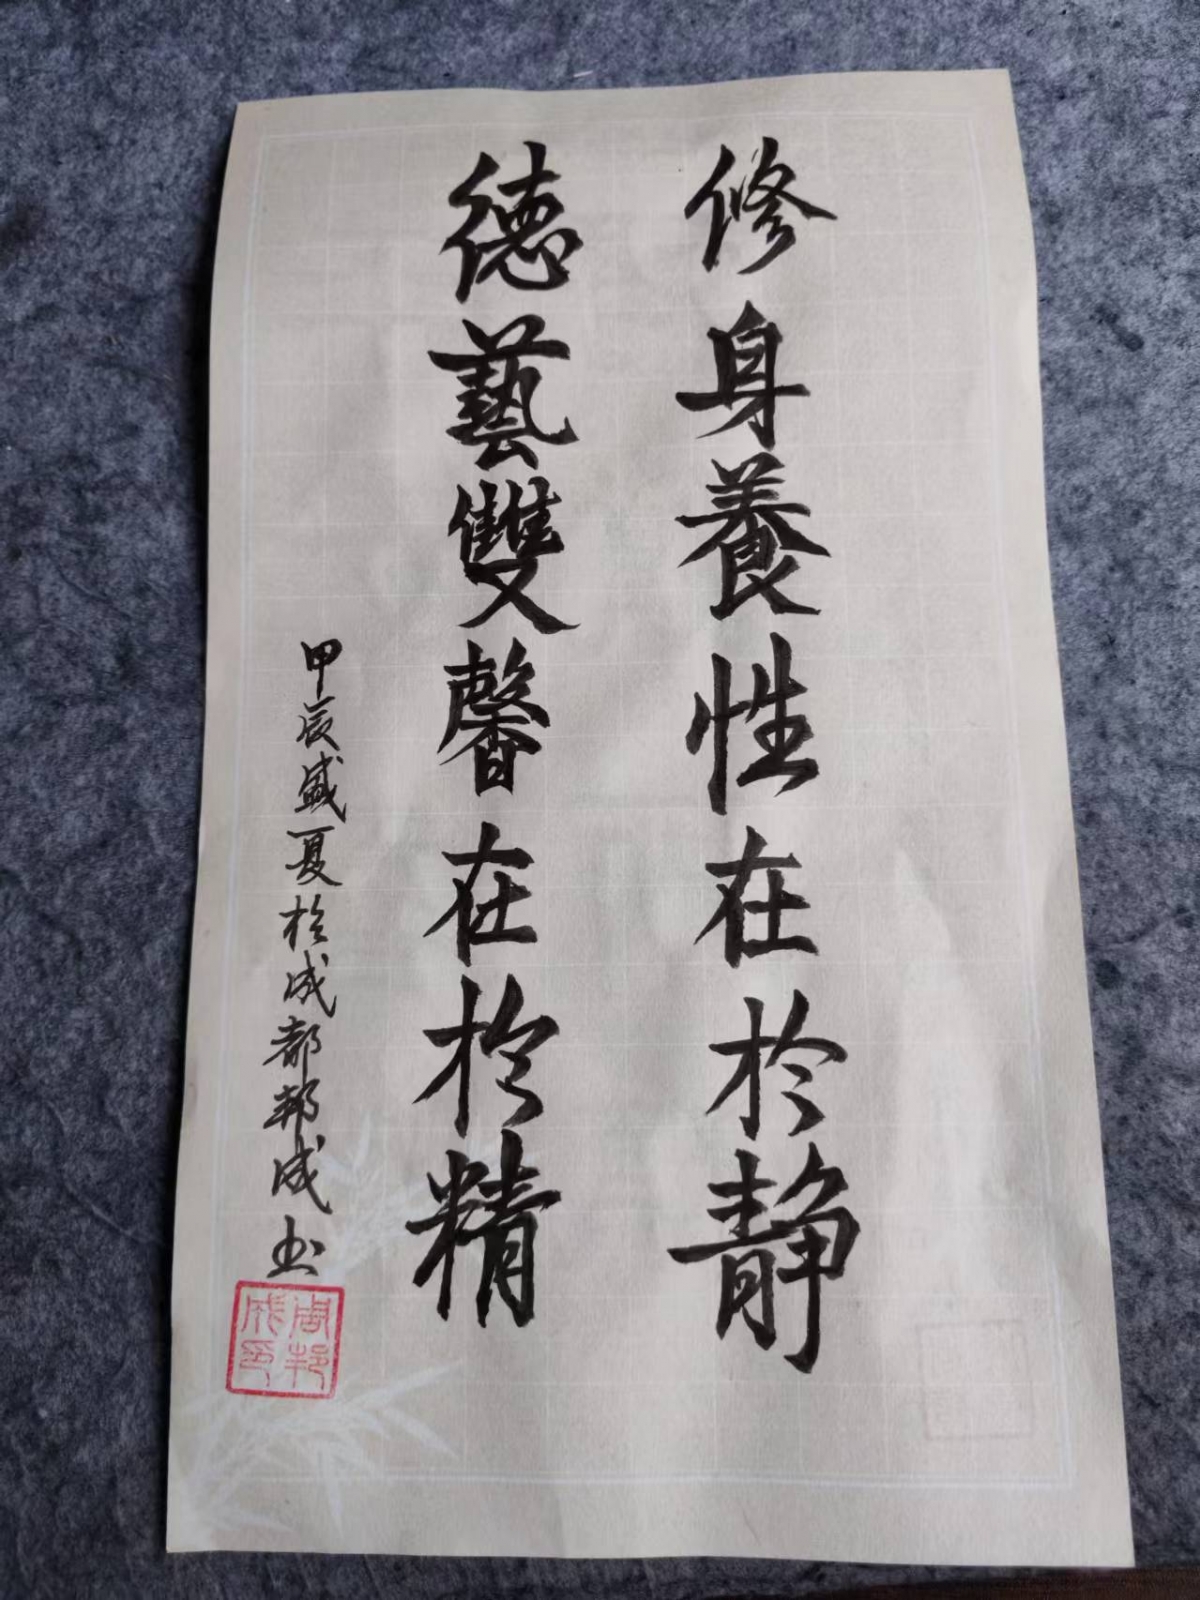 修身養性在於静
德藝雙馨在於精
甲辰盛夏於成都邦成书
周邦成印